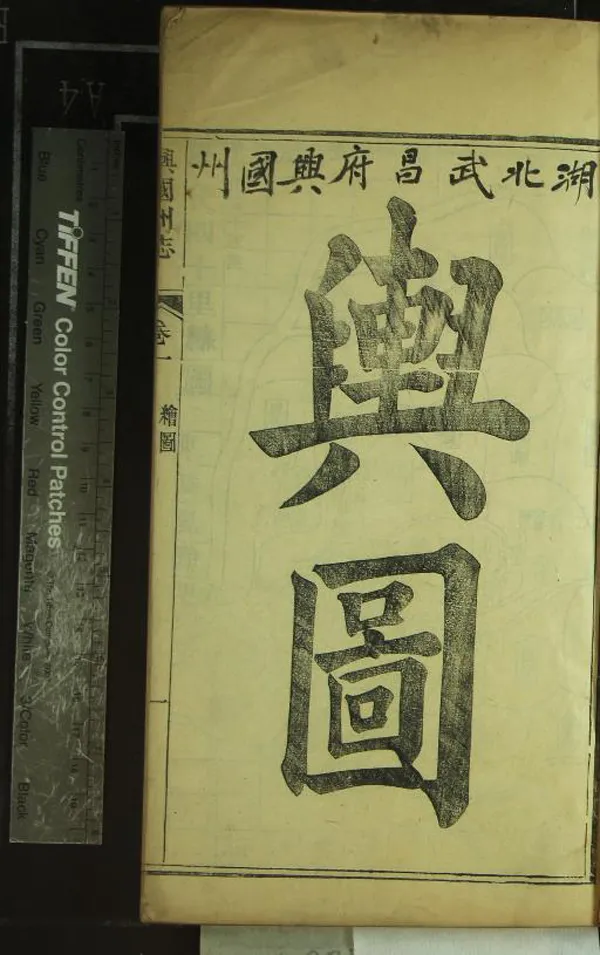 湖北武昌府興國州
輿圖
興國州志
卷一
繪圖
A4
Centimetres
TIFFEN Color Control Patches
Blue
Cyan
Green
Yellow
Red
Magenta
White
3/Color
Black